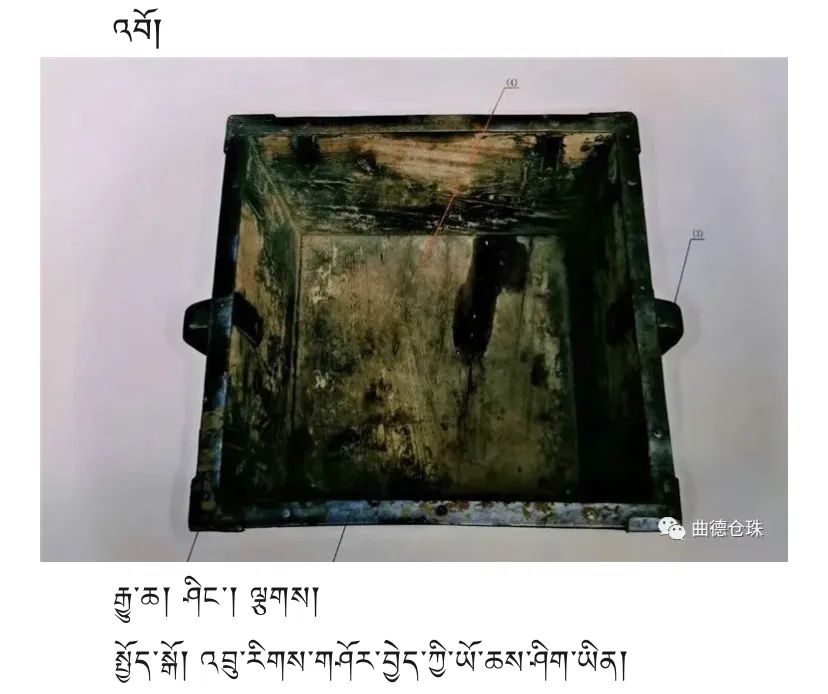 འབོ།
(4)
(3)
曲德仓珠
རྒྱུ་ཆ། ཤིང་། ལྕགས།
སྤྱོད་སྒོ། འབྲུ་རིགས་གཤོར་བྱེད་ཀྱི་ཡོ་ཆས་ཤིག་ཡིན།